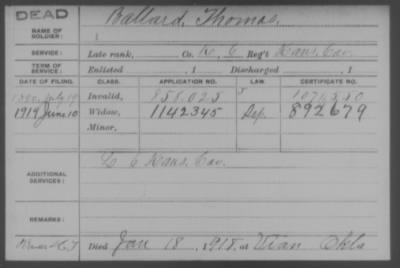 DEAD
NAME OF SOLDIER: Ballard, Thomas
SERVICE: Late rank, Co. K, 6 Reg't Kans. Cav.
TERM OF SERVICE: Enlisted , 1 Discharged , 1
DATE OF FILING. CLASS. APPLICATION NO. LAW. CERTIFICATE NO.
July 19 Invalid, 858.025
1919 June 10 Widow, 1142345 892679
Minor,
ADDITIONAL SERVICES: 6 Kans. Cav.
REMARKS:
Died Jan 18, 1918, at Vian Okla